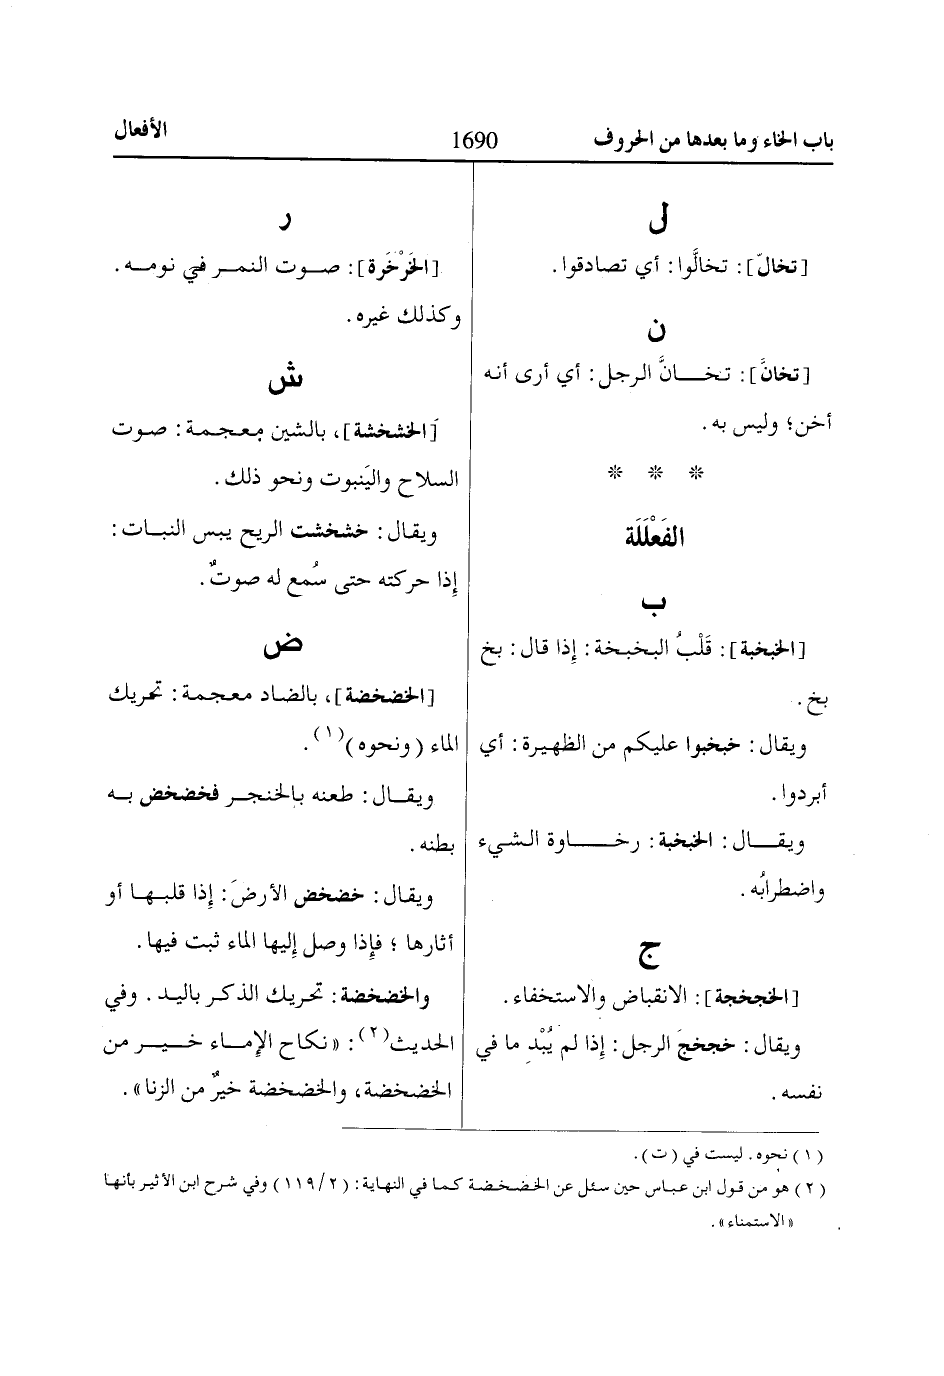 باب الخاء وما بعدها من الحروف
1690
الأفعال
ل
[تخالّ]: تخالُّوا: أي تصادقوا.
ن
[تخانَّ]: تخـانَّ الرجل: أي أرى أنه
أخن؛ وليس به.
* * *
الفَعْلَلَة
ب
[الخبخبة]: قَلْبُ البخبخة: إذا قال: بخ
بخ.
ويقال: خبخبوا عليكم من الظهيرة: أي
أبردوا.
ويقال: الخبخبة: رخاوة الشيء
واضطرابُه.
ج
[الخجخجة]: الانقباض والاستخفاء.
ويقال: خجخجَ الرجل: إذا لم يُبْدِ ما في
نفسه.
ر
[الخَرْخَرة]: صوت النمر في نومه.
وكذلك غيره.
ش
[الخشخشة]، بالشين معجمة: صوت
السلاح واليَنبوت ونحو ذلك.
ويقال: خشخشت الريح يبس النبات:
إذا حركته حتى سُمع له صوتٌ.
ض
[الخضخضة]، بالضاد معجمة: تحريك
الماء (ونحوه)(١).
ويقال: طعنه بالخنجر فخضخض به
بطنه.
ويقال: خضخض الأرضَ: إذا قلبها أو
أثارها؛ فإذا وصل إليها الماء ثبت فيها.
والخضخضة: تحريك الذكر باليد. وفي
الحديث(٢): «نكاح الإماء خير من
الخضخضة، والخضخضة خيرٌ من الزنا».
(١) نحوه. ليست في (ت).
(٢) هو من قول ابن عباس حين سئل عن الخضخضة كما في النهاية: (١١٩/٢) وفي شرح ابن الأثير بأنها
«الاستمناء».